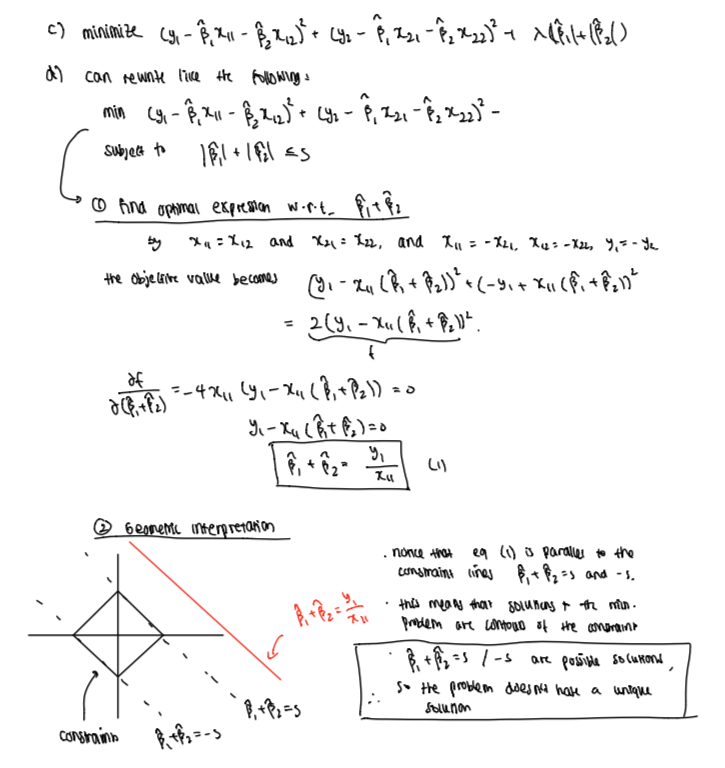 c) minimize (y₁ - β̂₁x₁₁ - β̂₂x₁₂)² + (y₂ - β̂₁x₂₁ - β̂₂x₂₂)² + λ(|β̂₁|+|β̂₂|)
d) can rewrite like the following:
min (y₁ - β̂₁x₁₁ - β̂₂x₁₂)² + (y₂ - β̂₁x₂₁ - β̂₂x₂₂)² -
subject to |β̂₁| + |β̂₂| ≤ s
① find optimal expression w.r.t. β̂₁+β̂₂
by x₁₁ = x₁₂ and x₂₁ = x₂₂, and x₁₁ = -x₂₁, x₁₂ = -x₂₂, y₁ = -y₂
the objective value becomes (y₁ - x₁₁(β̂₁ + β̂₂))² + (-y₁ + x₁₁(β̂₁ + β̂₂))²
= 2(y₁ - x₁₁(β̂₁ + β̂₂))².
f
∂f/∂(β̂₁+β̂₂) = -4x₁₁(y₁ - x₁₁(β̂₁+β̂₂)) = 0
y₁ - x₁₁(β̂₁+β̂₂) = 0
β̂₁ + β̂₂ = y₁/x₁₁ (1)
② Geometric interpretation
· notice that eq (1) is parallel to the
constraint lines β̂₁+β̂₂=s and -s.
β̂₁+β̂₂ = y₁/x₁₁
· this means that solutions to the min.
problem are contour of the constraint
· β̂₁+β̂₂=s / -s are possible solutions,
∴ so the problem doesn't have a unique
solution
β̂₁+β̂₂=s
constraints
β̂₁+β̂₂=-s